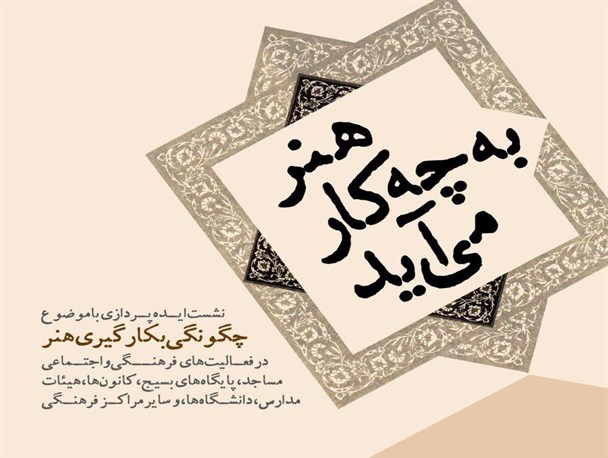 هنر
به چه کار
می‌آید
نشست ایده پردازی با موضوع
چگونگی بکارگیری هنر
در فعالیت‌های فرهنگی و اجتماعی
مساجد، پایگاه‌های بسیج، کانون‌ها، هیئات
مدارس، دانشگاه‌ها، و سایر مراکز فرهنگی